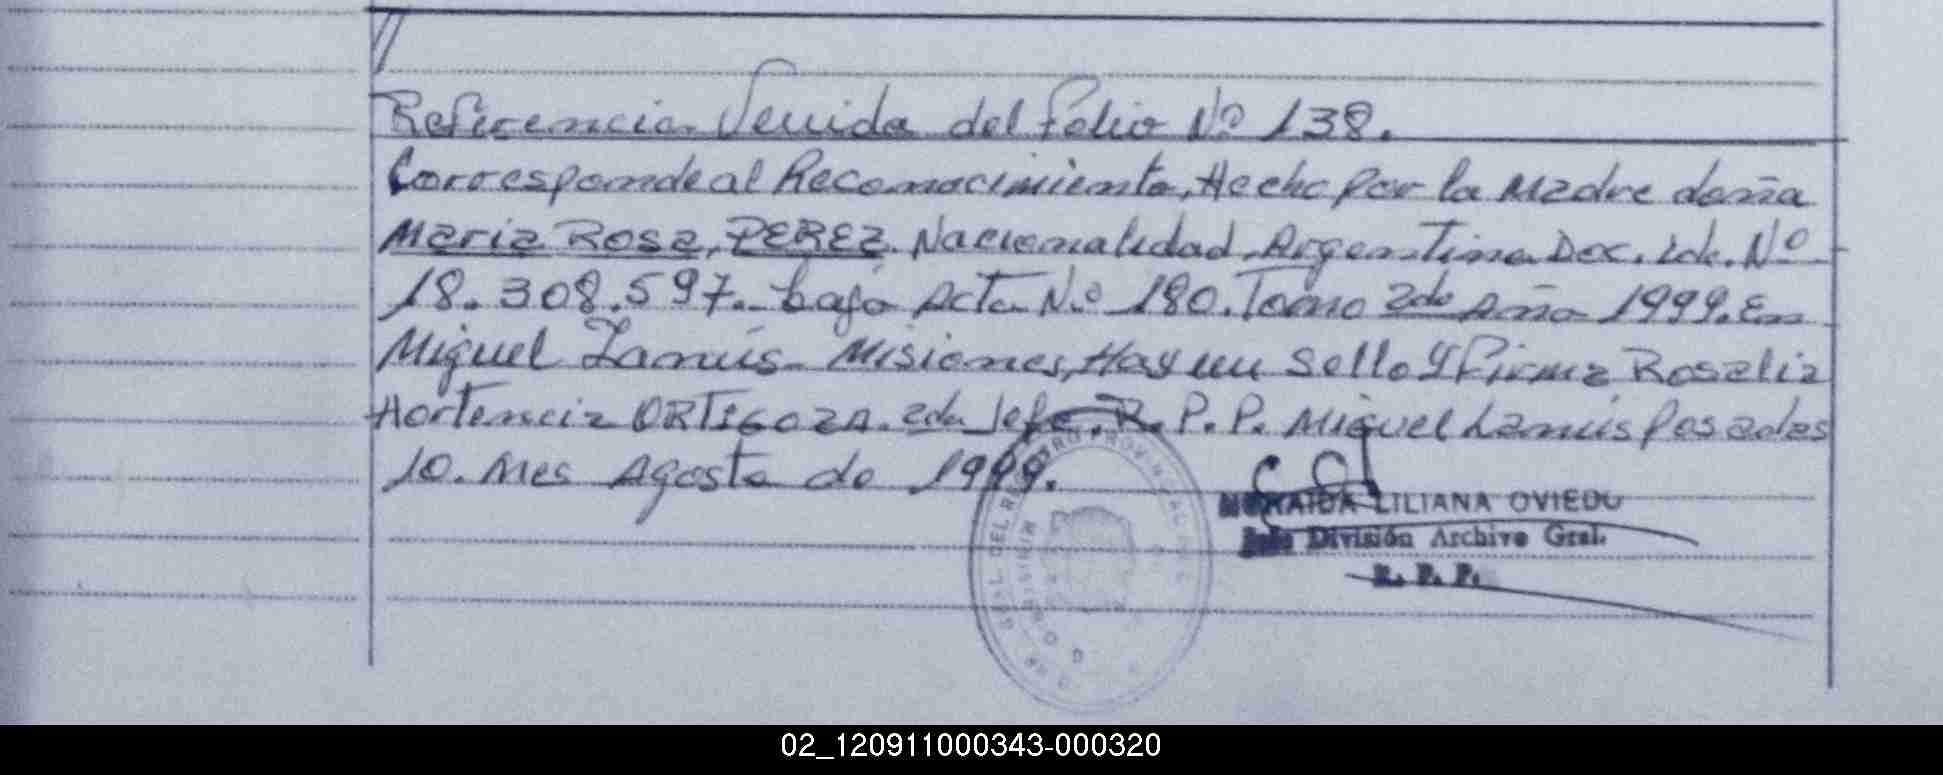 Referencia Venida del folio Nº 138.
Corresponde al Reconocimiento, Hecho por la Madre doña
Maria Rosa, PEREZ. Nacionalidad Argentina Doc. Ide. Nº
18.308.597. bajo Acta Nº 180. Tomo 2do Año 1999. En
Miguel Lanús - Misiones, Hay un Sello y Firma Rosalia
Hortencia ORTIGOZA. 2da Jefe. R. P. P. Miguel Lanús Posadas
10. Mes Agosto de 1999.
LILIANA OVIEDO
Jefe División Archivo Gral.
R. P. P.
GRAL. DEL REGISTRO PROVINCIAL
02_120911000343-000320